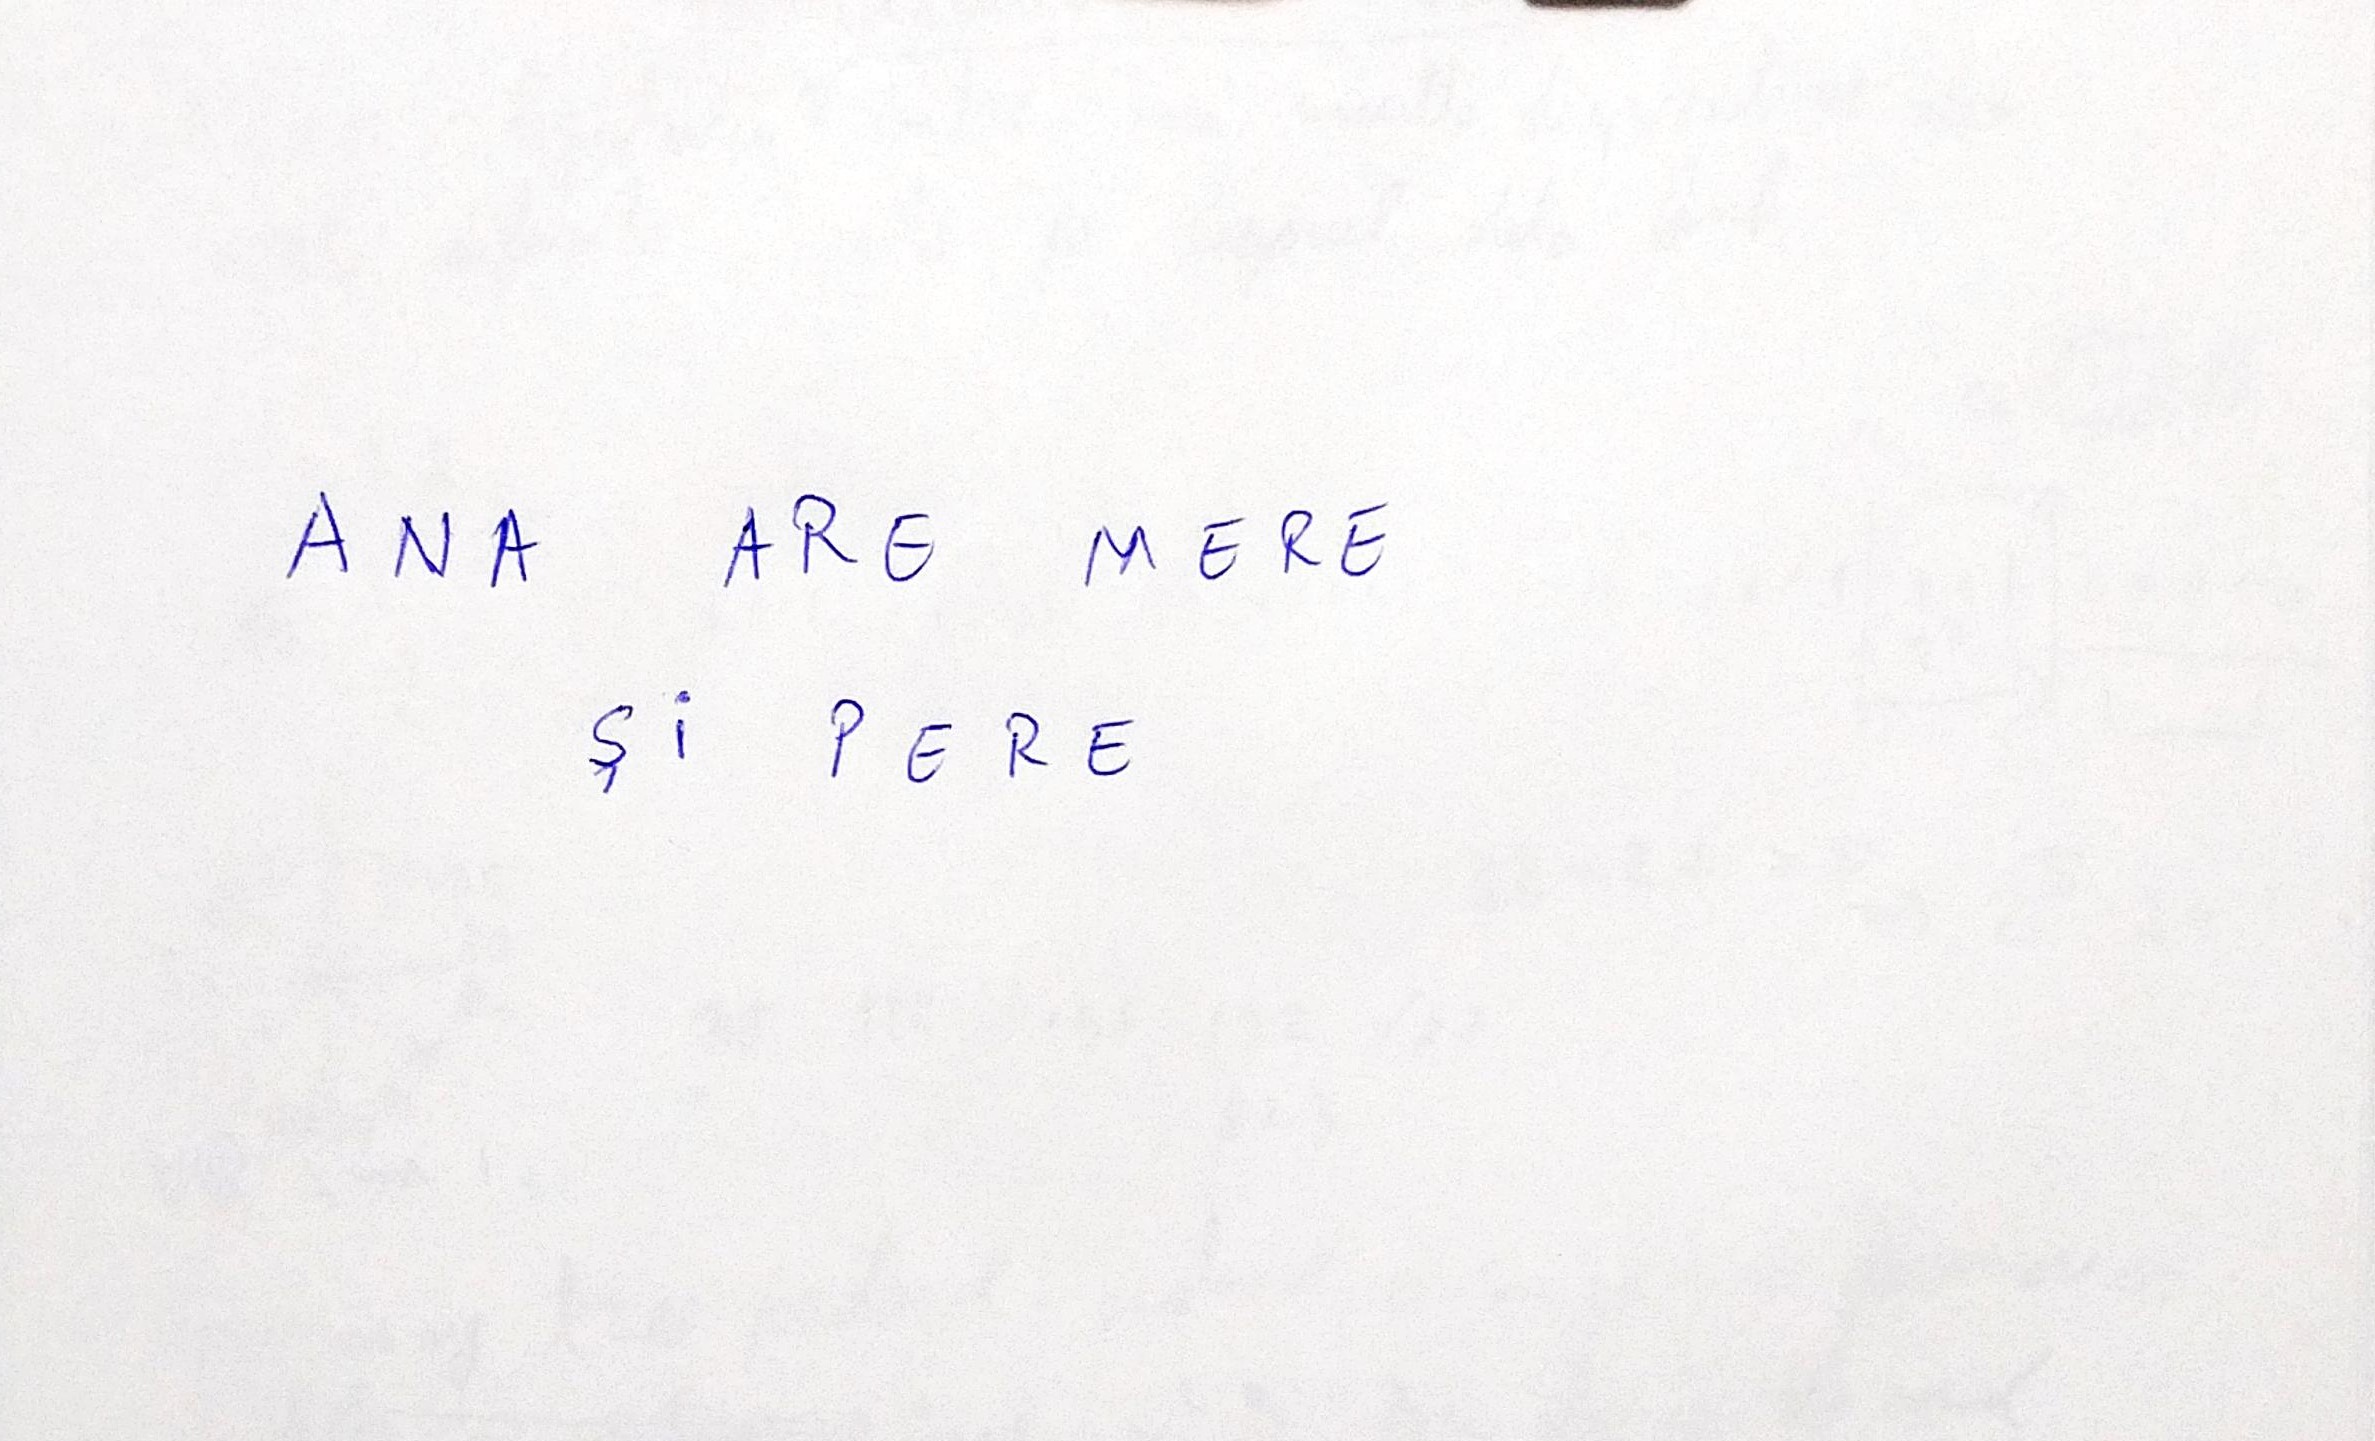 ANA ARE MERE
Și PERE